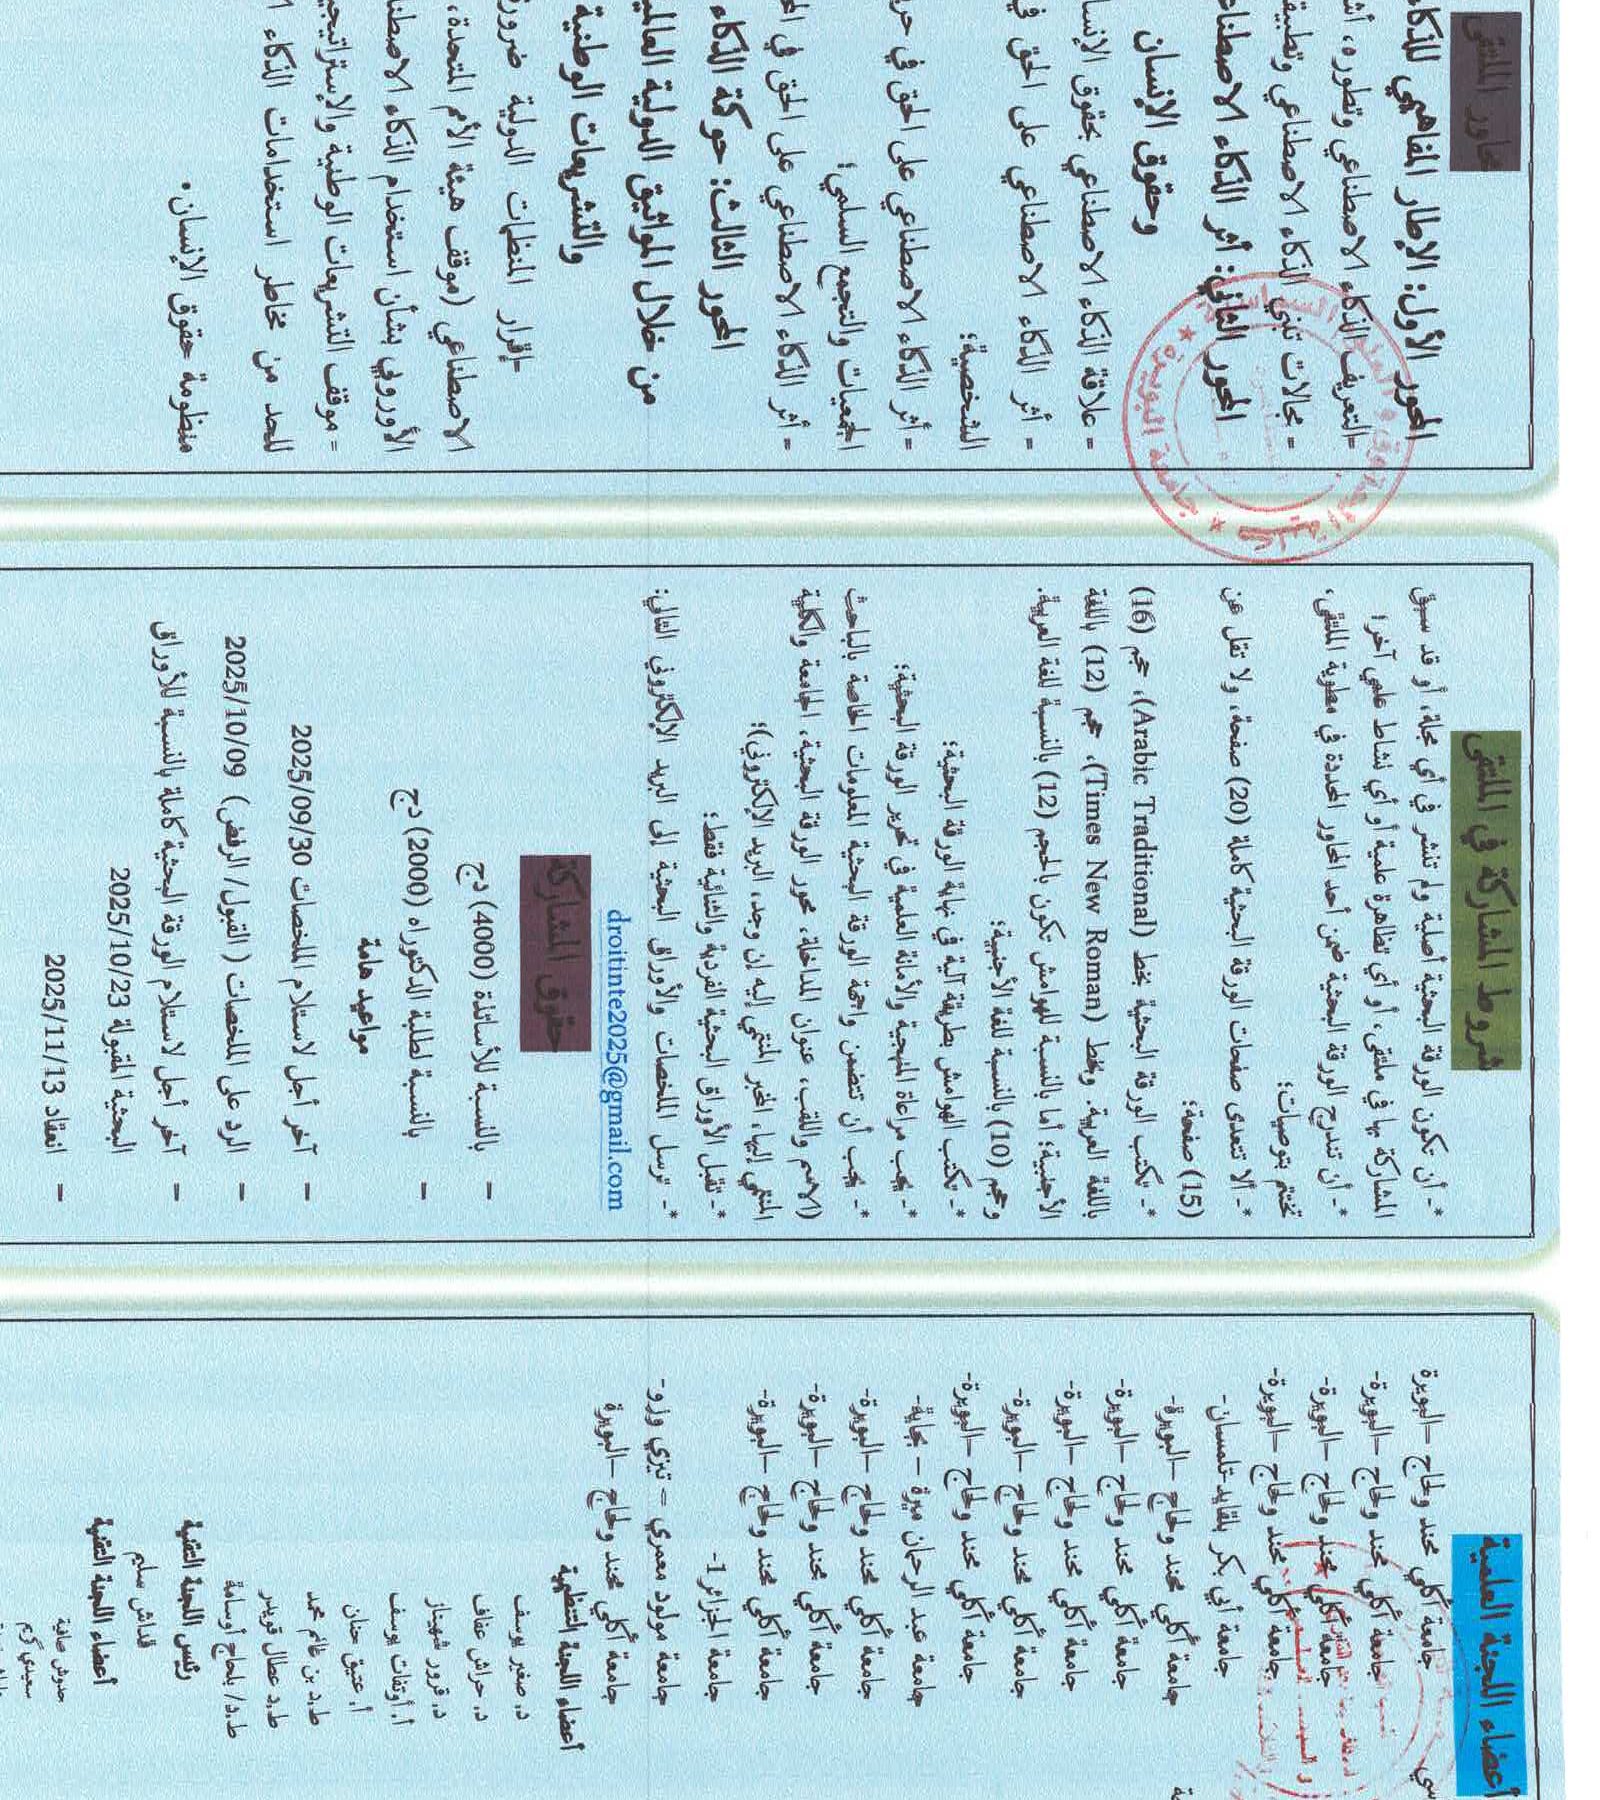 محاور الملتقى
المحور الأول: الإطار المفاهيمي للذكاء
-التعريف الذكاء الاصطناعي وتطوره،
= مجالات تبني الذكاء الاصطناعي
المحور الثاني: أثر الذكاء
وحقوق الإنسان
= علاقة الذكاء الاصطناعي بحقوق
= أثر الذكاء الاصطناعي على الحق في
الشخصية؛
= أثر الذكاء الاصطناعي على الحق في
الجمعيات والتجمع السلمي؛
= أثر الذكاء الاصطناعي على الحق في
المحور الثالث: حوكمة الذكاء
من خلال المواثيق الدولية
والتشريعات الوطنية
-إقرار المنظمات الدولية
الاصطناعي (موقف هيئة الأمم المتحدة،
الأوروبي بشأن استخدام الذكاء
= موقف التشريعات الوطنية
للحد من مخاطر استخدامات الذكاء
منظومة حقوق الإنسان.
شروط المشاركة في الملتقى
*- أن تكون الورقة البحثية أصلية ولم تنشر في أي مجلة، أو قد سبق
المشاركة بها في ملتقى، أو أي تظاهرة علمية أو أي نشاط علمي آخر؛
*- أن تندرج الورقة البحثية ضمن أحد المحاور المحددة في مطوية الملتقى،
تختتم بتوصيات؛
*- ألا تتعدى صفحات الورقة البحثية كاملة (20) صفحة، ولا تقل عن
(15) صفحة؛
*- تكتب الورقة البحثية بخط (Arabic Traditional)، حجم (16)
باللغة العربية. وبخط (Times New Roman)، حجم (12) باللغة
الأجنبية؛ أما بالنسبة للهوامش تكون بالحجم (12) بالنسبة للغة العربية.
وحجم (10) بالنسبة للغة الأجنبية؛
*- تكتب الهوامش بطريقة آلية في نهاية الورقة البحثية؛
*- يجب مراعاة المنهجية والأمانة العلمية في تحرير الورقة البحثية؛
*- يجب أن تتضمن واجهة الورقة البحثية المعلومات الخاصة بالباحث
(الاسم واللقب، عنوان المداخلة، محور الورقة البحثية، الجامعة والكلية
المنتمي إليها، المخبر المنتمي إليه إن وجد، البريد الإلكتروني)؛
*- تقبل الأوراق البحثية الفردية والثنائية فقط؛
*- ترسل الملخصات والأوراق البحثية إلى البريد الإلكتروني التالي:
droitinte2025@gmail.com
حقوق المشاركة
– بالنسبة للأساتذة (4000) دج
– بالنسبة لطلبة الدكتوراه (2000) دج
مواعيد هامة
– آخر أجل لاستلام الملخصات 2025/09/30
– الرد على الملخصات ( القبول/ الرفض) 2025/10/09
– آخر أجل لاستلام الورقة البحثية كاملة بالنسبة للأوراق
البحثية المقبولة 2025/10/23
– انعقاد 2025/11/13
أعضاء اللجنة العلمية
جامعة أكلي محند ولحاج –البويرة
جامعة أكلي محند ولحاج –البويرة-
جامعة أكلي محند ولحاج –البويرة-
جامعة أكلي محند ولحاج –البويرة-
جامعة أبي بكر بلقايد-تلمسان-
جامعة أكلي محند ولحاج –البويرة-
جامعة أكلي محند ولحاج –البويرة-
جامعة أكلي محند ولحاج –البويرة-
جامعة أكلي محند ولحاج –البويرة-
جامعة أكلي محند ولحاج –البويرة-
جامعة عبد الرحمان ميرة – بجاية-
جامعة أكلي محند ولحاج –البويرة-
جامعة أكلي محند ولحاج –البويرة-
جامعة أكلي محند ولحاج –البويرة-
جامعة الجزائر 1-
جامعة مولود معمري – تيزي وزو-
جامعة أكلي محند ولحاج –البويرة
أعضاء اللجنة التنظيمية
د. صغير يوسف
د. حراش عفاف
د. قرور شهيناز
أ. أوتفات يوسف
أ. عتيق حنان
ط.د بن غانم محمد
ط.د عطال قويدر
ط.د/ بلحاج أوسامة
رئيس اللجنة التقنية
قداش سليم
أعضاء اللجنة التقنية
حدوش صافية
سعيدي كريم